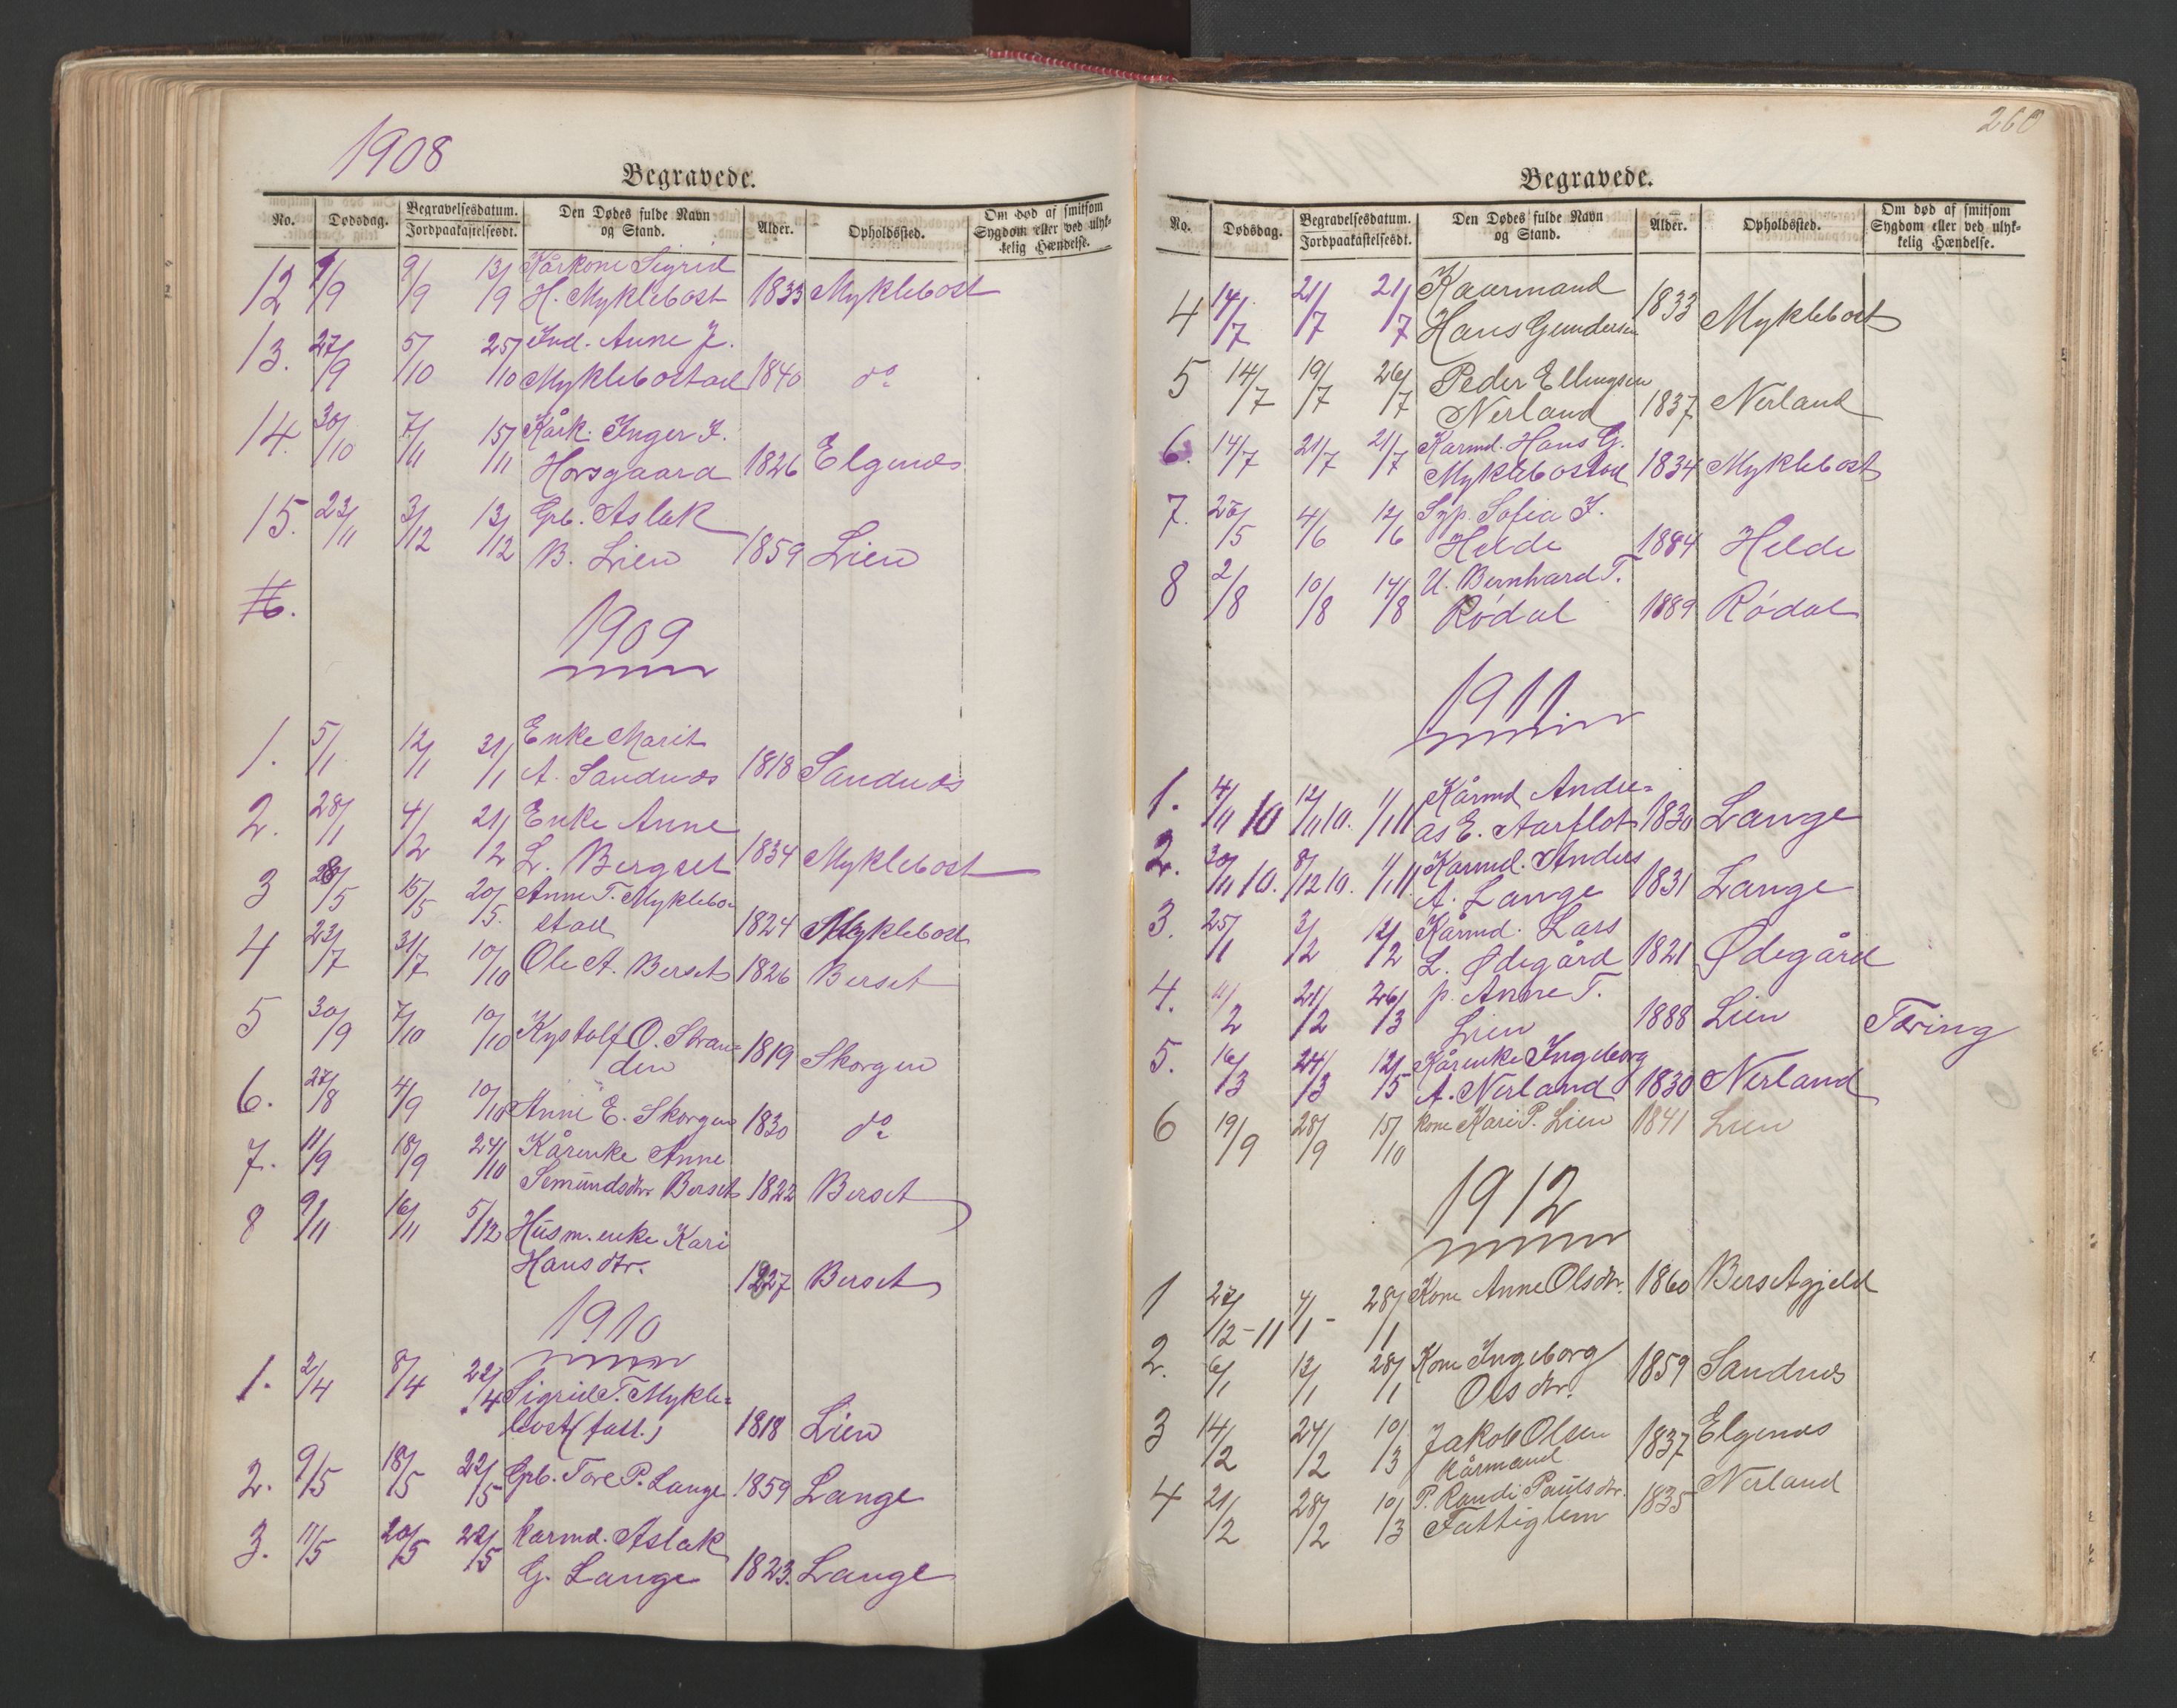 1908
Begravede.
No. Dødsdag. Begravelsesdatum. Jordpaakastelsesdt. Den Dødes fulde Navn og Stand. Alder. Opholdssted. Om død af smitsom Sygdom eller ved ulyk-kelig Hændelse.
12 9/9 13/9 Kårkone Sigrid
H. Myklebost 1833 Myklebost
13. 27/9 5/10 25/10 Ind. Anne J.
Myklebostad 1840 do
14. 30/10 7/11 15/11 Kårk. Inger J.
Horsgaard 1826 Elgenes
15. 23/11 3/12 13/12 Grb. Aslak
B. Lien 1859 Lien
1909
1. 5/1 12/1 31/1 Enke Marit
A. Sandnes 1818 Sandnes
2. 28/1 4/2 21/2 Enke Anne
L. Bergset 1834 Myklebost
3 /5 15/5 20/5. Anne T. Myklebo-
stad 1824 Myklebost
4 23/7 31/7 10/10 Ole A. Berset 1826 Berset
5 30/9 7/10 10/10 Kystolf O. Stran=
den 1819 Skorgen
6. 27/8 4/9 10/10 Anne E. Skorgen 1830 do
7. 11/9 18/9 24/10 Kårenke Anne
Semundsdtr Berset 1822 Berset
8 9/11 16/11 5/12 Husm. enke Kari
Hansdtr. 1827 Berset
1910
1. 2/4 8/4 22/4 Sigrid T. Mykle=
bost (fatt.) 1818 Lien
2. 9/5 18/5 22/5 Grb. Tore P. Lange 1859 Lange
3. 11/5 20/5 22/5 karmd. Aslak
G. Lange 1823. Lange
260
Begravede.
No. Dødsdag. Begravelsesdatum. Jordpaakastelsesdt. Den Dødes fulde Navn og Stand. Alder. Opholdssted. Om død af smitsom Sygdom eller ved ulyk-kelig Hændelse.
4 14/7 21/7 21/7 Kaarmand
Hans Gundersen 1833 Myklebost
5 14/7 19/7 26/7 Peder Ellingsen
Nerland 1837 Nerland
6. 14/7 21/7 21/7 Karmd. Hans G.
Myklebostad 1834 Myklebost
7. /5 4/6 12/6 Sofia J.
Helde 1884 Helde
8 2/8 10/8 14/8 U. Bernhard T.
Rødal 1889 Rødal
1911
1. 4/11 10 12/11 10. 1/1 11 Kårmd Andre=
as E. Aarflot 1830 Lange
2. 30/11 10. 8/12 10. 1/1 11 Karmd. Anders
A. Lange 1831 Lange
3. 25/1 3/2 12/2 Kårmd. Lars
L. Ødegård 1821 Ødegård
4. 11/2 21/2 26/3 p. Anne T.
Lien 1888 Lien Tæring
5. 16/3 24/3 12/5 Kårenke Ingeborg
A. Nerland 1830 Nerland
6 19/9 28/9 15/10 kone Kari P. Lien 1841 Lien
1912
1 27/12-11 4/1- 28/1 Kone Anne Olsdtr. 1860 Bersetgjeld
2. 6/1 13/1 28/1 Kone Ingeborg
Olsdtr. 1859 Sandnes
3 14/2 24/2 10/3 Jakob Olsen
kårmand 1837 Elgenes
4 21/2 28/2 10/3 P. Randi Paulsdtr.
Fattiglem 1835 Nerland